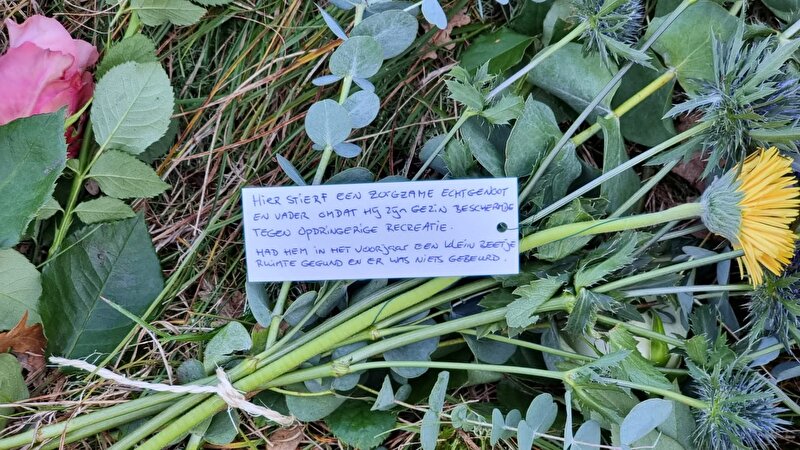 HIER STIERF EEN ZORGZAME ECHTGENOOT
EN VADER OMDAT HIJ ZIJN GEZIN BESCHERMDE
TEGEN OPDRINGERIGE RECREATIE.
HAD HEM IN HET VOORJAAR EEN KLEIN BEETJE
RUIMTE GEGUND EN ER WAS NIETS GEBEURD.